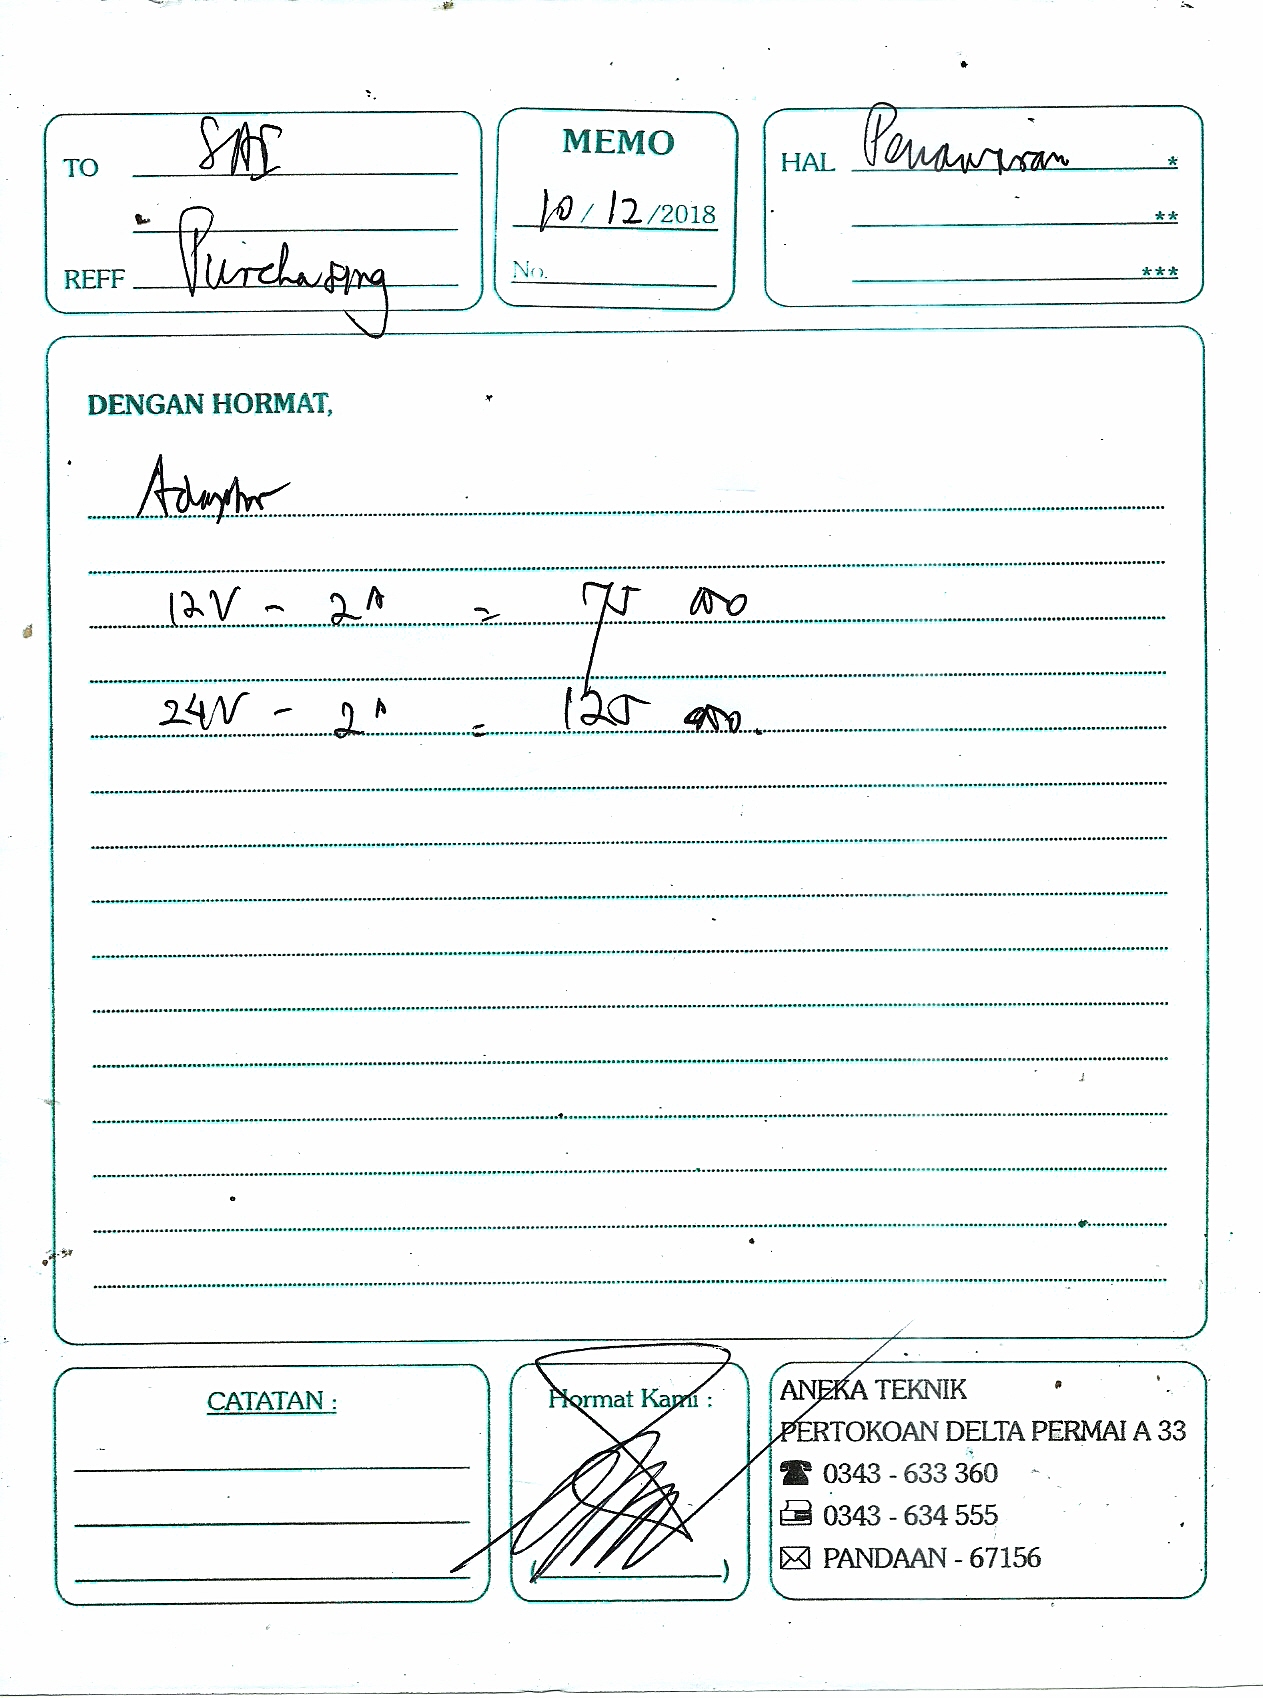 TO SAI
MEMO
HAL Penawaran *
10/12/2018
**
REFF Purchasing
No.
***
DENGAN HORMAT,
Adaptor
12V - 2A = 75 000
24V - 2A = 125 000.
CATATAN :
Hormat Kami :
( )
ANEKA TEKNIK
PERTOKOAN DELTA PERMAI A 33
☎ 0343 - 633 360
0343 - 634 555
✉ PANDAAN - 67156